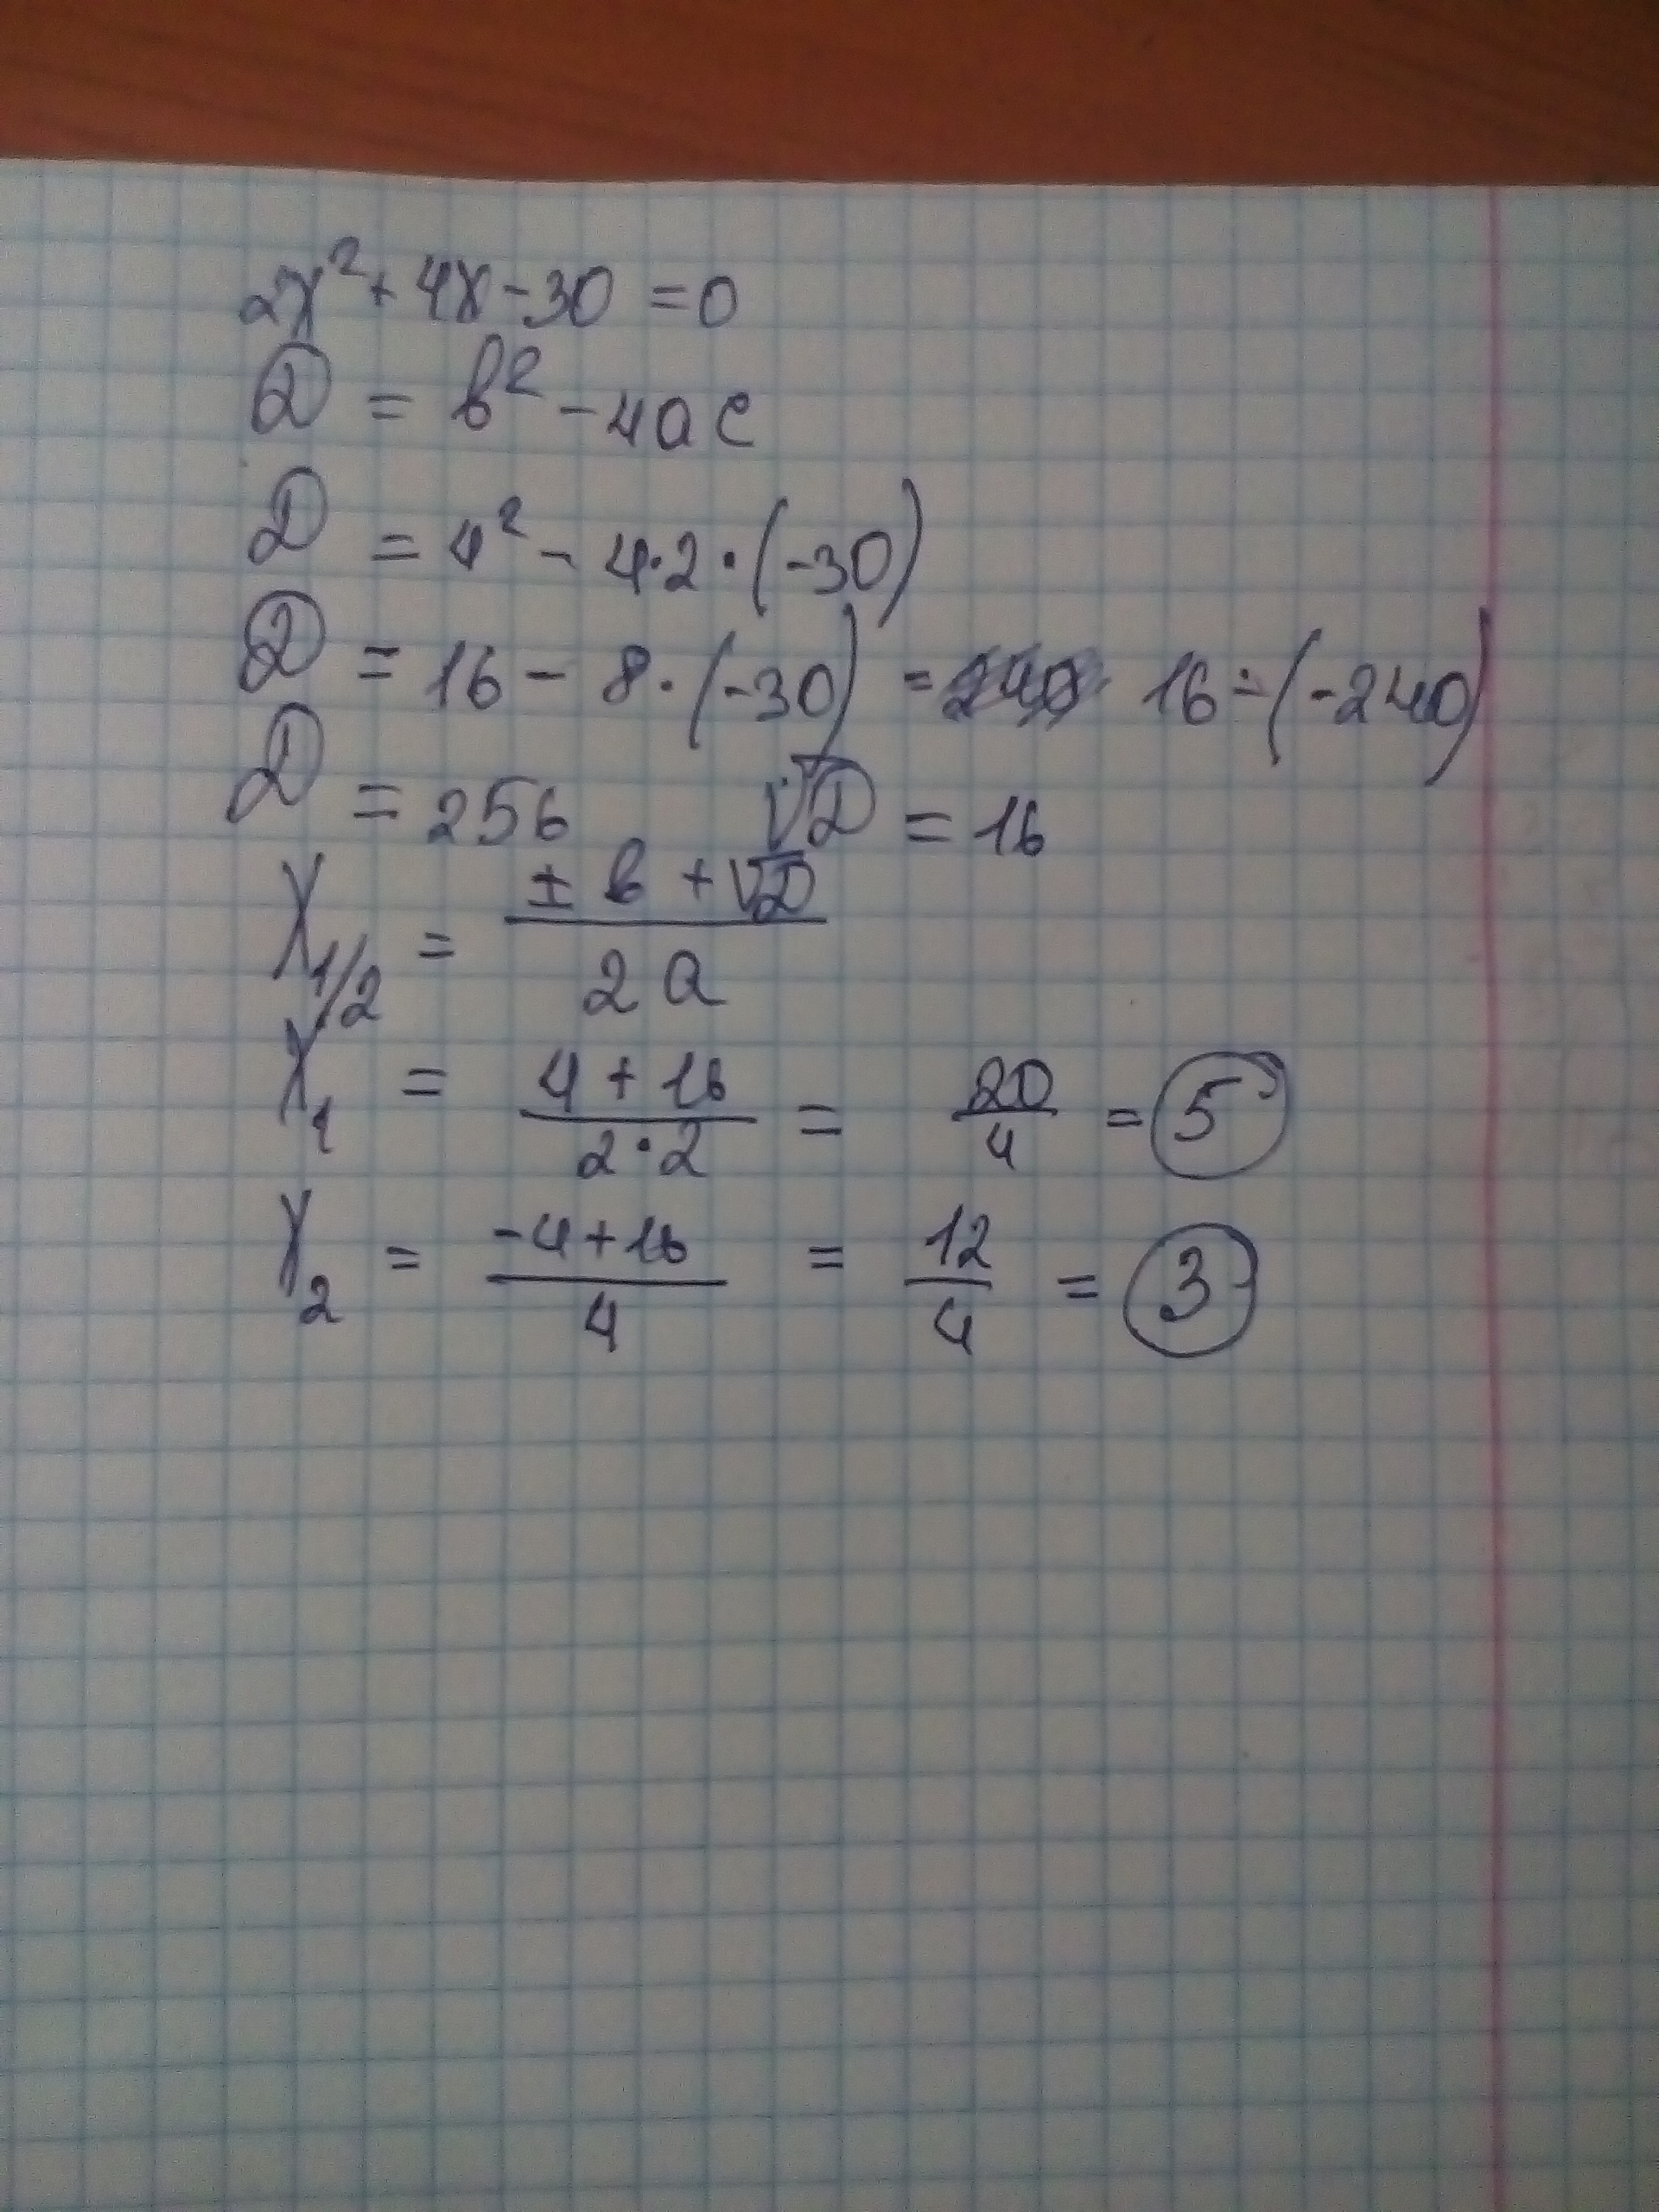 2x² + 4x - 30 = 0
D = b² - 4ac
D = 4² - 4·2·(-30)
D = 16 - 8·(-30) = 16 - (-240)
D = 256 √D = 16
x1/2 = (± b + √D)/(2a)
x1 = (4 + 16)/(2·2) = 20/4 = 5
x2 = (-4 + 16)/4 = 12/4 = 3